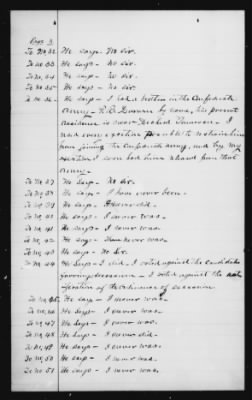 Page 3
To no 32. He says - No Sir.
To no 33. He says - No Sir.
To no 34 He says - No Sir.
To no 35 He says - No Sir.
To no 36 - He says - I had a brother in the Confederate
army - by name, his present
residence is near I
used every exertion possible to restrain him
from joining the Confederate army, and by my
exertion I even had him released from that
army.
To no 37 He says - No Sir.
To no 38 He says - I have never been.
To no 39 He says - I never did.
To no 40 He says - I never was.
To no 41 He says - I never was.
To no 42 He says - I have never was.
To no 43 He says - No Sir.
To no 44 He says - I did. I voted against the candidate
favoring secession - I voted against the
of the ordinance of secession
To no 45 He says - I never was.
To no 46 He says - I never was.
To no 47 He says - I never was.
To no 48 He says - I never was.
To no 49 He says - I never was.
To no 50 He says - I never was.
To no 51 He says - I never was.